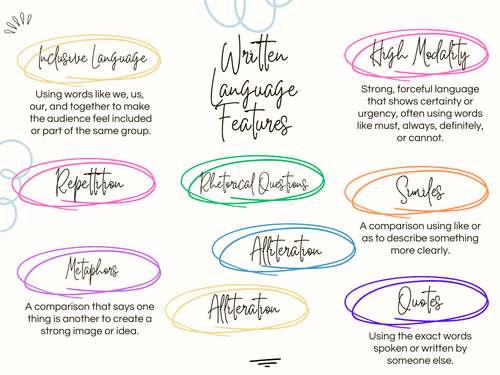 Written
Language
Features
Inclusive Language
Using words like we, us,
our, and together to make
the audience feel included
or part of the same group.
High Modality
Strong, forceful language
that shows certainty or
urgency, often using words
like must, always, definitely,
or cannot.
Repetition
Rhetorical Questions
Similes
A comparison using like or
as to describe something
more clearly.
Metaphors
A comparison that says one
thing is another to create a
strong image or idea.
Alliteration
Alliteration
Quotes
Using the exact words
spoken or written by
someone else.